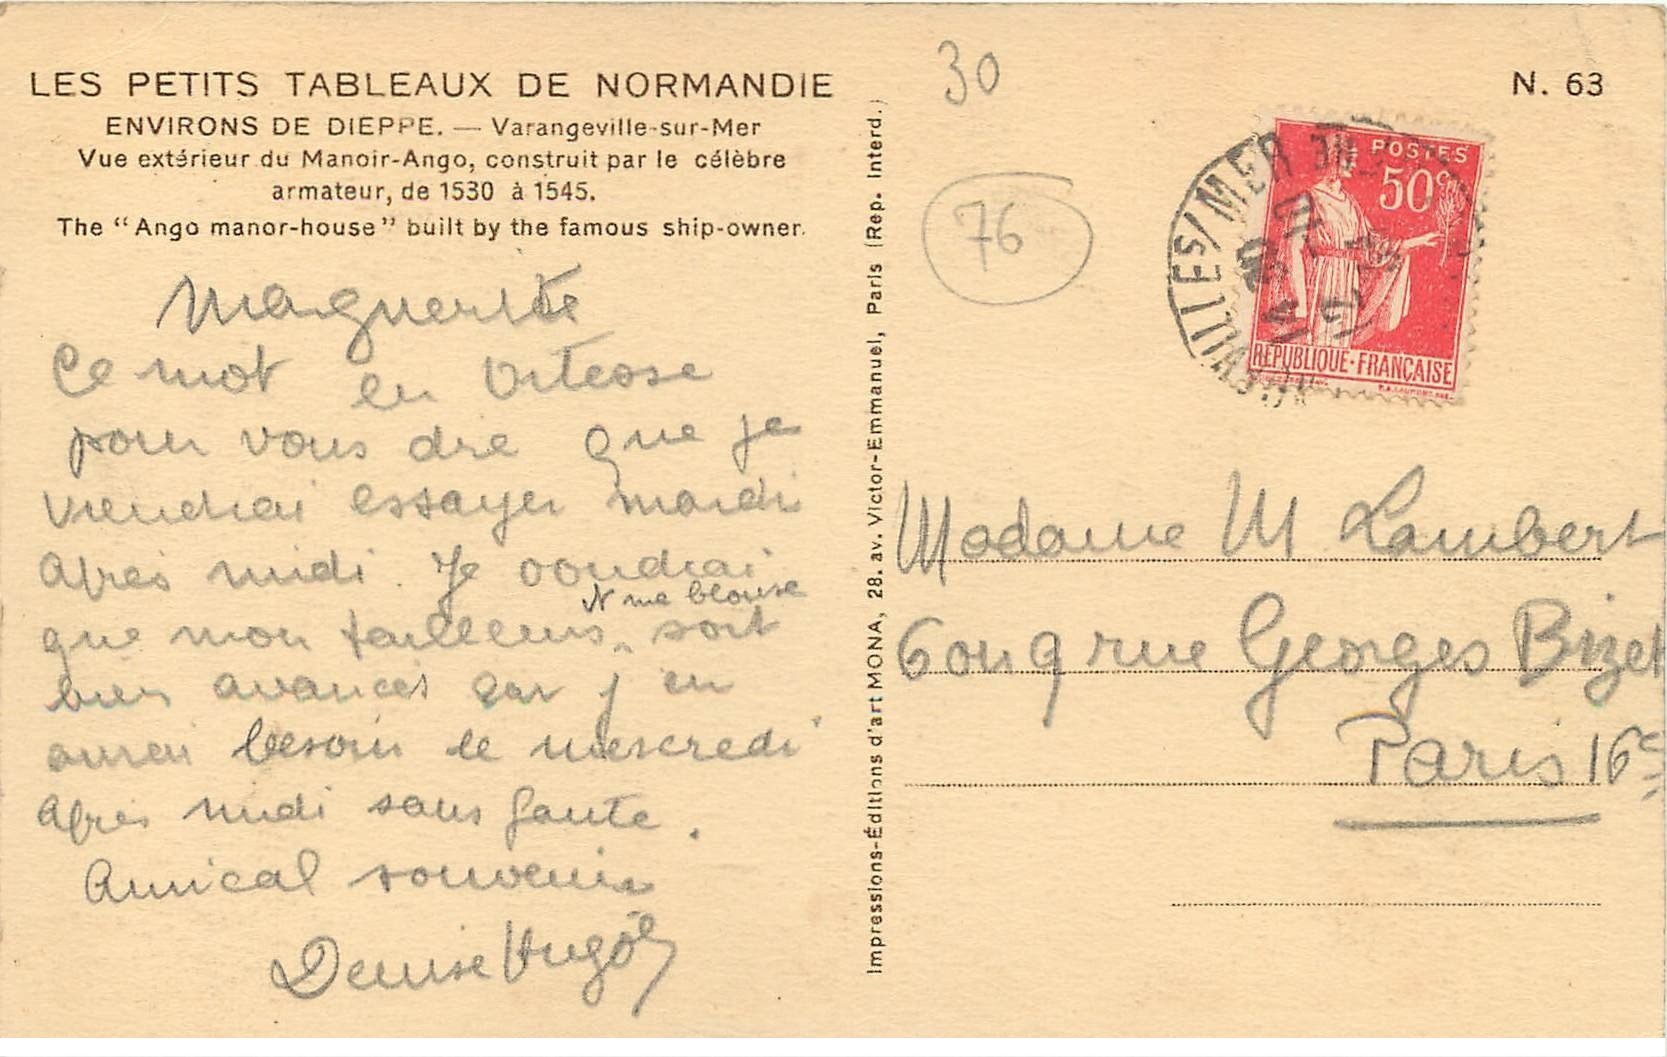 LES PETITS TABLEAUX DE NORMANDIE
ENVIRONS DE DIEPPE. — Varangeville-sur-Mer
Vue extérieur du Manoir-Ango, construit par le célèbre
armateur, de 1530 à 1545.
The "Ango manor-house" built by the famous ship-owner.
Marguerite
Ce mot en vitesse
pour vous dire que je
viendrai essayer mardi
après midi. Je voudrai
me blouse
que mon tailleur soit
bien avancés car j'en
aurai besoin le mercredi
après midi sans faute.
Amical souvenir
Denise Hugo
Impressions-Éditions d'art MONA, 28. av. Victor-Emmanuel, Paris (Rep. Interd.)
30
N. 63
76
POSTES
50c
REPUBLIQUE·FRANÇAISE
Madame M Lambert
6 ou 9 rue Georges Bizet
Paris 16e